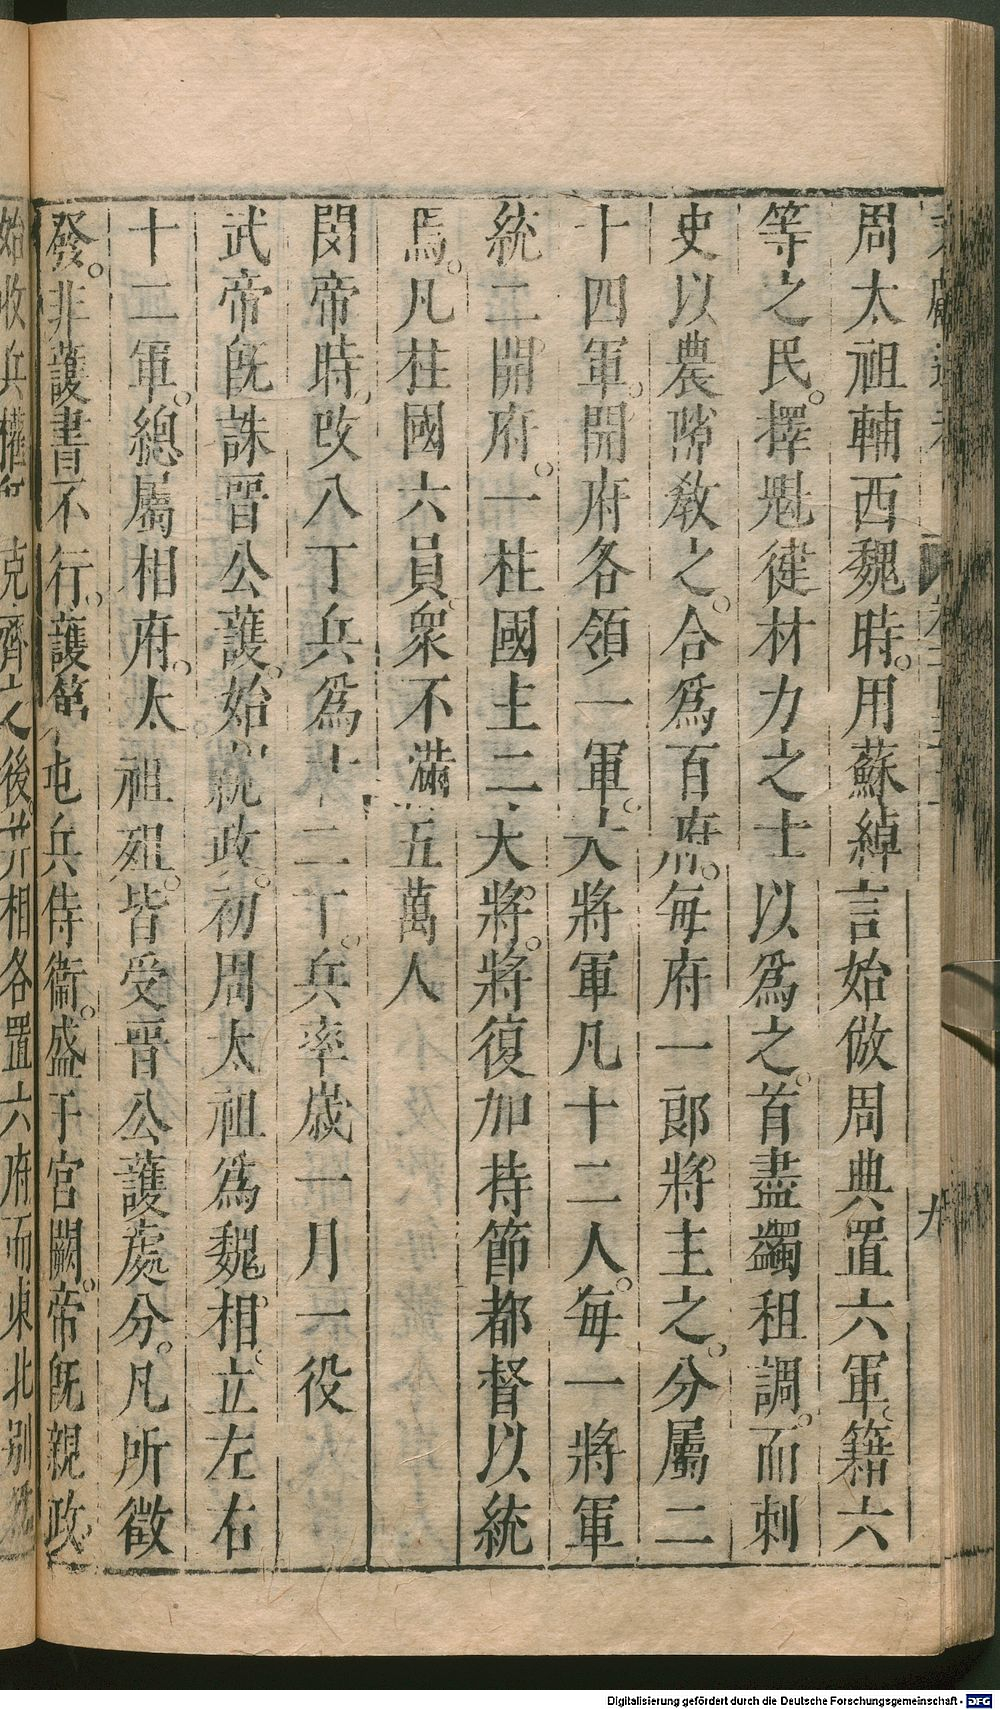 周太祖輔西魏時。用蘇綽言始倣周典置六軍。籍六
等之民。擇魁健材力之士以爲之。首盡蠲租調。而刺
史以農隙敎之。合爲百府。每府一郎將主之。分屬二
十四軍。開府各領一軍。大將軍凡十二人。每一將軍
統二開府。一柱國主二大將。將復加持節都督以統
焉。凡柱國六員。衆不滿五萬人
閔帝時。改八丁兵爲十二丁。兵率歲一月一役
武帝旣誅晉公護。始親政。初周太祖爲魏相。立左右
十二軍。總屬相府。太祖殂。皆受晉公護處分。凡所徵
發。非護書不行。護第屯兵侍衞。盛于宮闕。帝旣親政。
始收兵權 克齊之後。并相各置六府而東北別
九
Digitalisierung gefördert durch die Deutsche Forschungsgemeinschaft - DFG